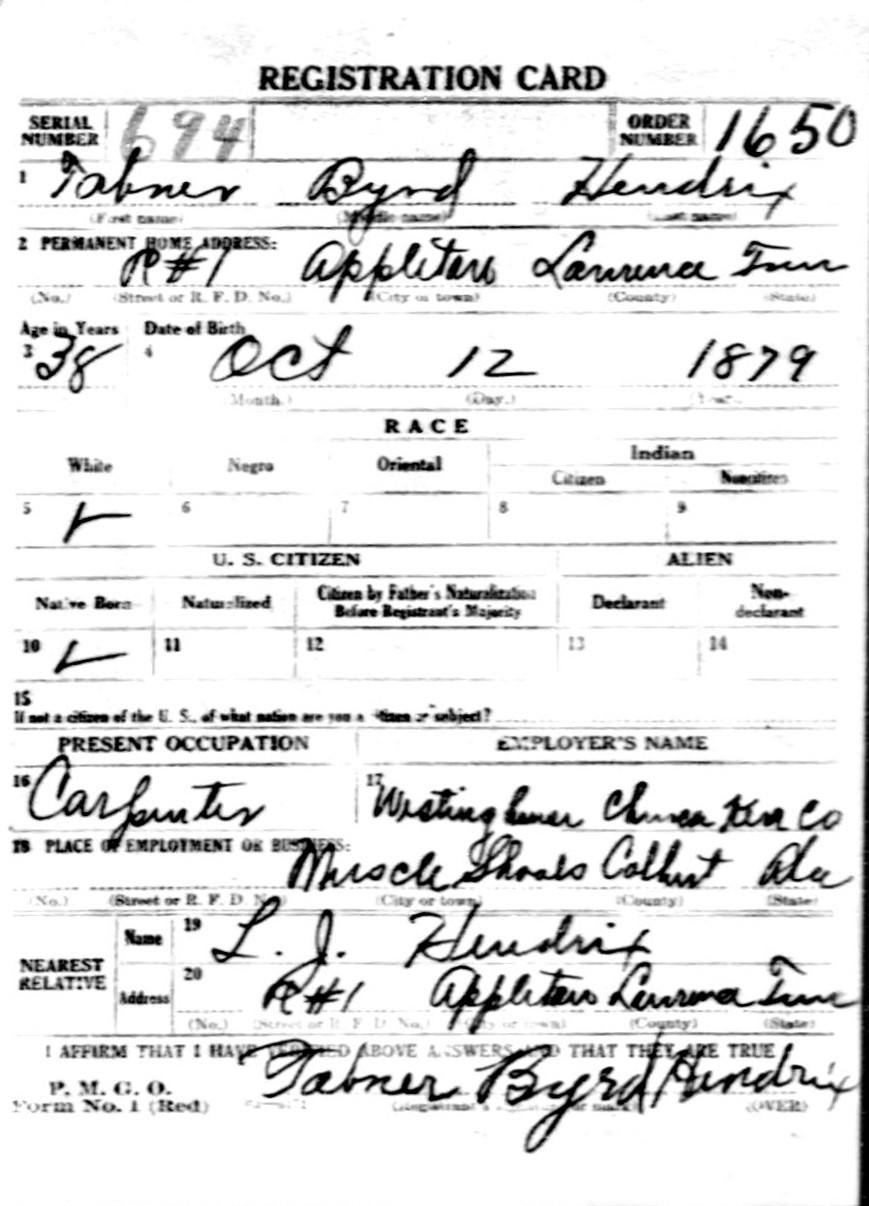 REGISTRATION CARD
SERIAL NUMBER 694 ORDER NUMBER 1650
1 Tabner Byrd Hendrix
(First name) (Middle name) (Last name)
2 PERMANENT HOME ADDRESS:
R#1 Appleton Lawrence Tenn
(No.) (Street or R. F. D. No.) (City or town) (County) (State)
Age in Years Date of Birth
3 38 4 Oct 12 1879
(Month.) (Day.) (Year.)
RACE
White Negro Oriental Indian
Citizen Noncitizen
5 ✓ 6 7 8 9
U. S. CITIZEN ALIEN
Native Born Naturalized Citizen by Father's Naturalization Before Registrant's Majority Declarant Non-declarant
10 ✓ 11 12 13 14
15
If not a citizen of the U. S., of what nation are you a citizen or subject?
PRESENT OCCUPATION EMPLOYER'S NAME
16 Carpenter 17 Westinghouse Church Kerr Co
18 PLACE OF EMPLOYMENT OR BUSINESS:
Muscle Shoals Colbert Ala
(No.) (Street or R. F. D. No.) (City or town) (County) (State)
NEAREST RELATIVE
Name 19 L. J. Hendrix
Address 20 R#1 Appleton Lawrence Tenn
(No.) (Street or R. F. D. No.) (City or town) (County) (State)
I AFFIRM THAT I HAVE VERIFIED ABOVE ANSWERS AND THAT THEY ARE TRUE
P. M. G. O.
Form No. 1 (Red)
Tabner Byrd Hendrix
(Registrant's signature or mark) (OVER)